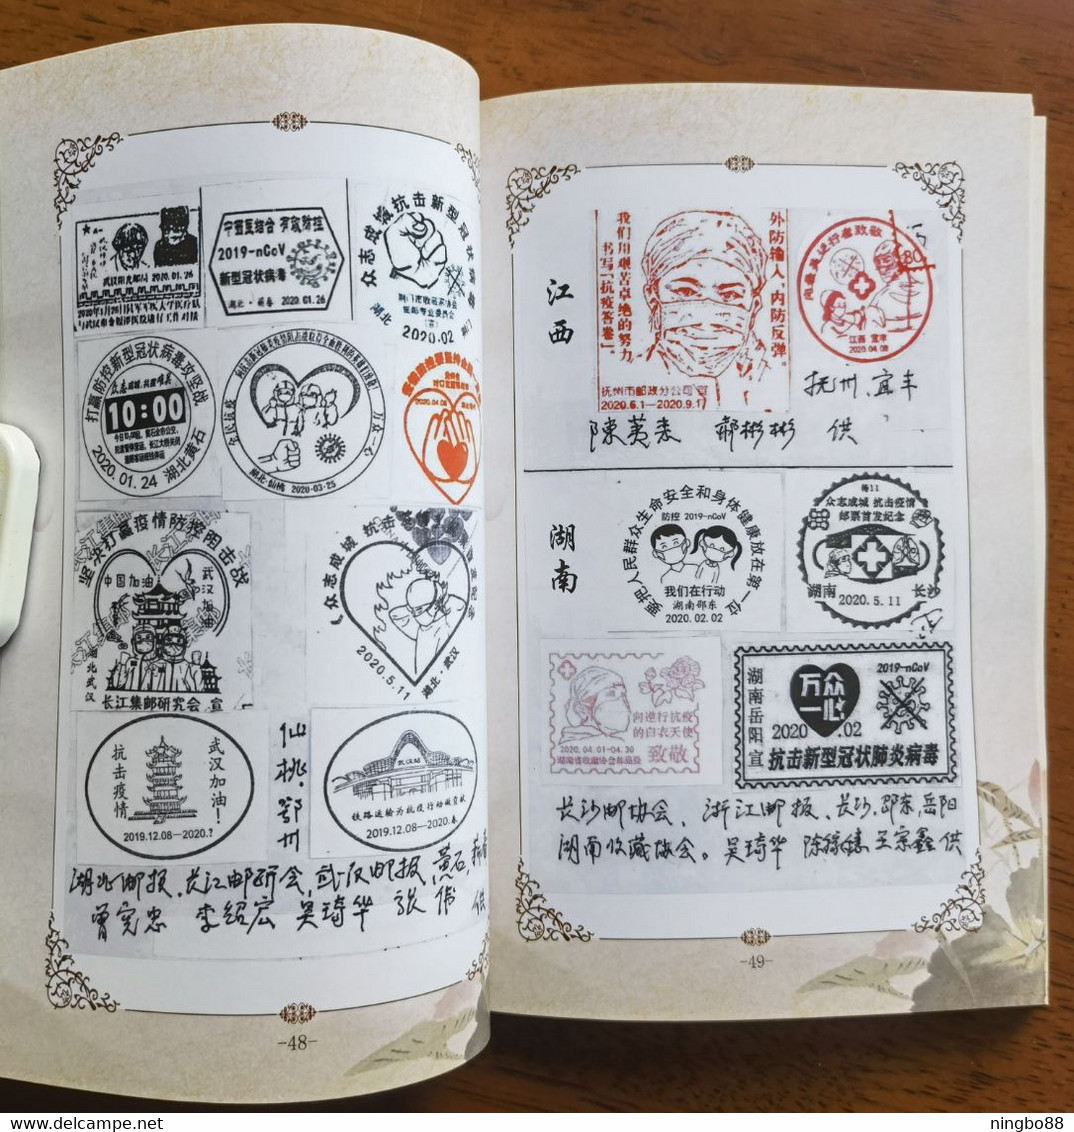 武汉阳光邮局 2020.01.26
2019-nCoV
新型冠状病毒
2020.01.26
众志成城抗击新型冠状病毒
湖北
2020.02
打赢防控新型冠状病毒攻坚战
众志成城
10:00
2020.01.24 湖北黄石
全民抗疫
万众一心
湖北·仙桃 2020-03-25
2020.04.08
坚决打赢疫情防控阻击战
中国加油
武汉加油
湖北武汉
长江集邮研究会 宣
众志成城 抗击
2020.5.11
湖北 武汉
抗击疫情
武汉加油!
2019.12.08—2020.?
仙桃.鄂州
武汉站
铁路运输为抗疫行动做贡献
2019.12.08—2020.春
湖北邮报、长江邮研会、武汉邮报、黄石、
曾宪忠 李绍宏 吴琦华 张伟 供
-48-
江西
我们用艰苦卓绝的努力
书写“抗疫答卷”。
外防输入、内防反弹
抚州市邮政分公司 宣
2020.6.1—2020.9.17
向最美逆行者致敬
80
江西 宜丰
2020.04.08
抚州、宜丰
供
湖南
要把人民群众生命安全和身体健康放在第一位
防控 2019-nCoV
我们在行动
湖南邵东
2020.02.02
特11
众志成城 抗击疫情
邮票首发纪念
湖南 2020.5.11 长沙
向逆行抗疫
的白衣天使
致敬
2020.04.01-04.30
湖南岳阳 宣
2019-nCoV
万众
一心
2020 .02
抗击新型冠状肺炎病毒
长沙邮协会、浙江邮报、长沙、邵东、岳阳
湖南收藏协会。吴琦华 王宗鑫 供
-49-
www.delcampe.net
ningbo88